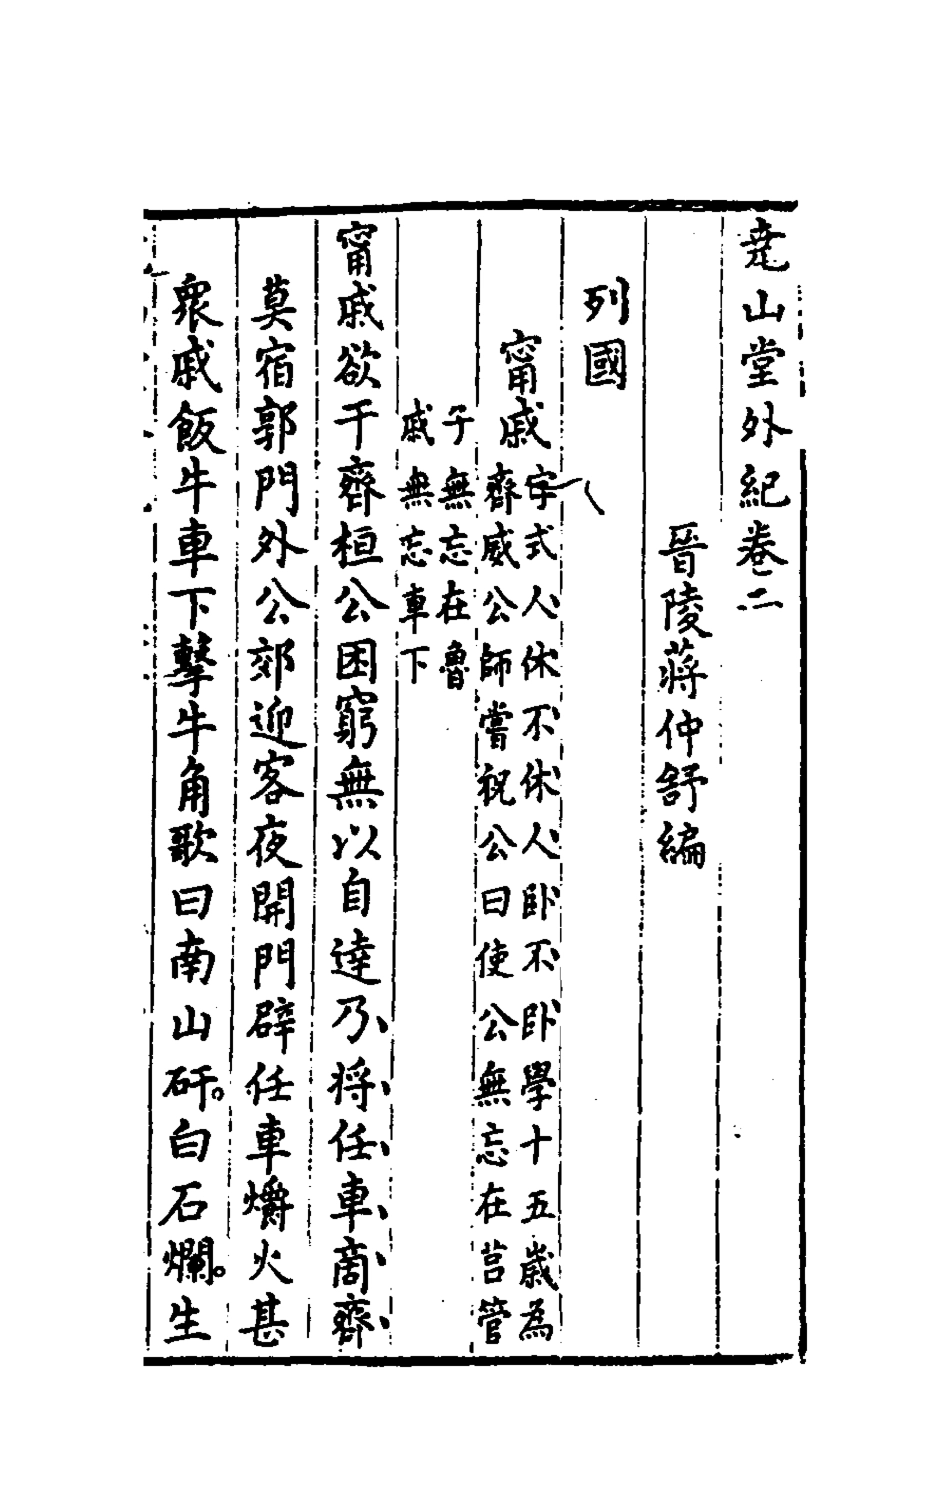 尭山堂外紀卷二
晉陵蔣仲舒編
列國
甯戚
字式人休不休人卧不卧學十五歲為
齊威公師嘗祝公曰使公無忘在莒管
子無忘在魯
戚無忘車下
甯戚欲干齊桓公困窮無以自達乃將任車商齊
莫宿郭門外公郊迎客夜開門辟任車爝火甚
衆戚飯牛車下擊牛角歌曰南山矸。白石爛。生